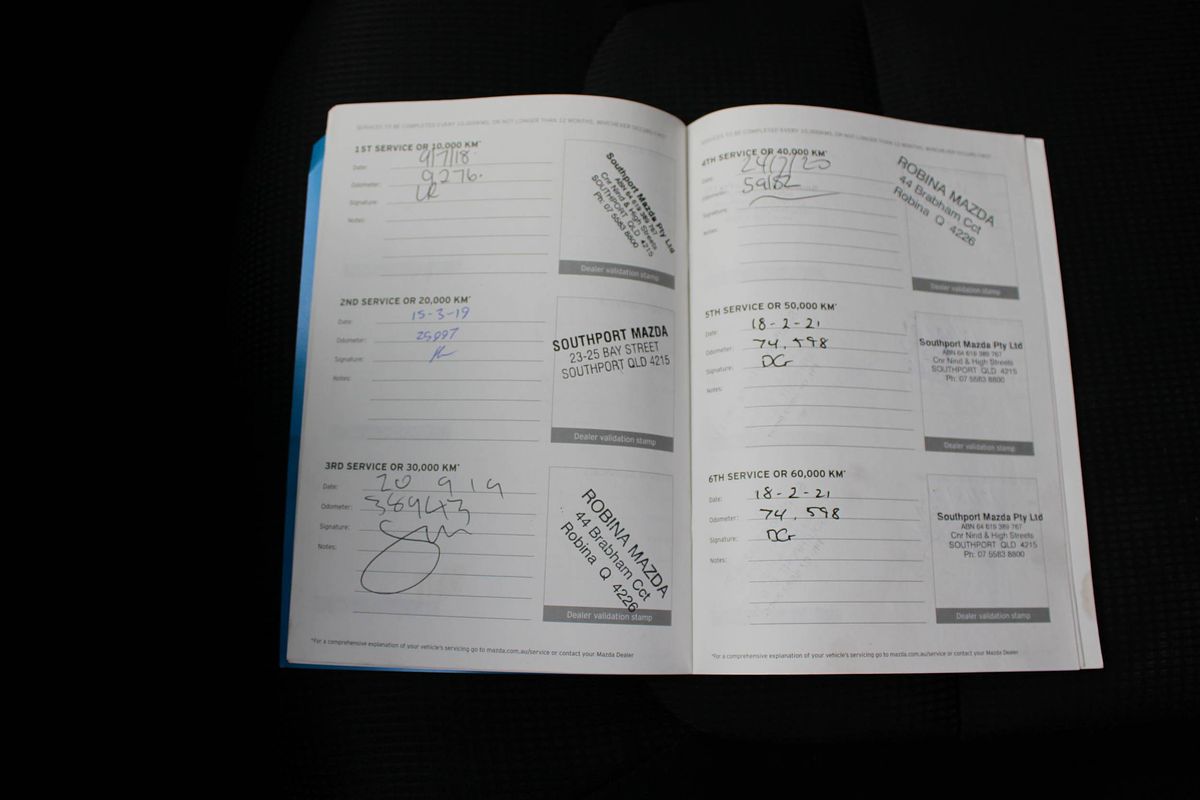 SERVICES TO BE COMPLETED EVERY 10,000KMS, OR NOT LONGER THAN 12 MONTHS, WHICHEVER OCCURS FIRST
1ST SERVICE OR 10,000 KM*
Date: 9/7/18
Odometer: 9276.
Signature:
Notes:
Southport Mazda Pty Ltd
ABN 64 619 389 767
Cnr Nind & High Streets
SOUTHPORT QLD 4215
Ph: 07 5583 8800
Dealer validation stamp
2ND SERVICE OR 20,000 KM*
Date: 15-3-19
Odometer: 25997
Signature:
Notes:
SOUTHPORT MAZDA
23-25 BAY STREET
SOUTHPORT QLD 4215
Dealer validation stamp
3RD SERVICE OR 30,000 KM*
Date: 20 9 19
Odometer: 38943
Signature:
Notes:
ROBINA MAZDA
44 Brabham Cct
Robina Q 4226
Dealer validation stamp
*For a comprehensive explanation of your vehicle's servicing go to mazda.com.au/service or contact your Mazda Dealer
SERVICES TO BE COMPLETED EVERY 10,000KMS, OR NOT LONGER THAN 12 MONTHS, WHICHEVER OCCURS FIRST
4TH SERVICE OR 40,000 KM*
Date:
Odometer: 59182
Signature:
Notes:
ROBINA MAZDA
44 Brabham Cct
Robina Q 4226
Dealer validation stamp
5TH SERVICE OR 50,000 KM*
Date: 18-2-21
Odometer: 74,598
Signature: DG
Notes:
Southport Mazda Pty Ltd
ABN 64 619 389 767
Cnr Nind & High Streets
SOUTHPORT QLD 4215
Ph: 07 5583 8800
Dealer validation stamp
6TH SERVICE OR 60,000 KM*
Date: 18-2-21
Odometer: 74,598
Signature: DG
Notes:
Southport Mazda Pty Ltd
ABN 64 619 389 767
Cnr Nind & High Streets
SOUTHPORT QLD 4215
Ph: 07 5583 8800
Dealer validation stamp
*For a comprehensive explanation of your vehicle's servicing go to mazda.com.au/service or contact your Mazda Dealer